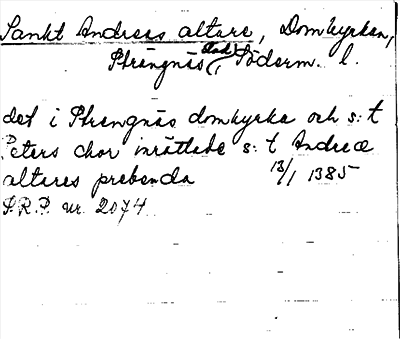 Sankt Andreas altare, Domkyrkan,
Strängnäs stad, Söderm. l.
det i Strengnäs domkyrka och s:t
Peters chor inrättade s:t Andreæ
altares prebenda 13/1 1385
S.R.P. nr. 2074